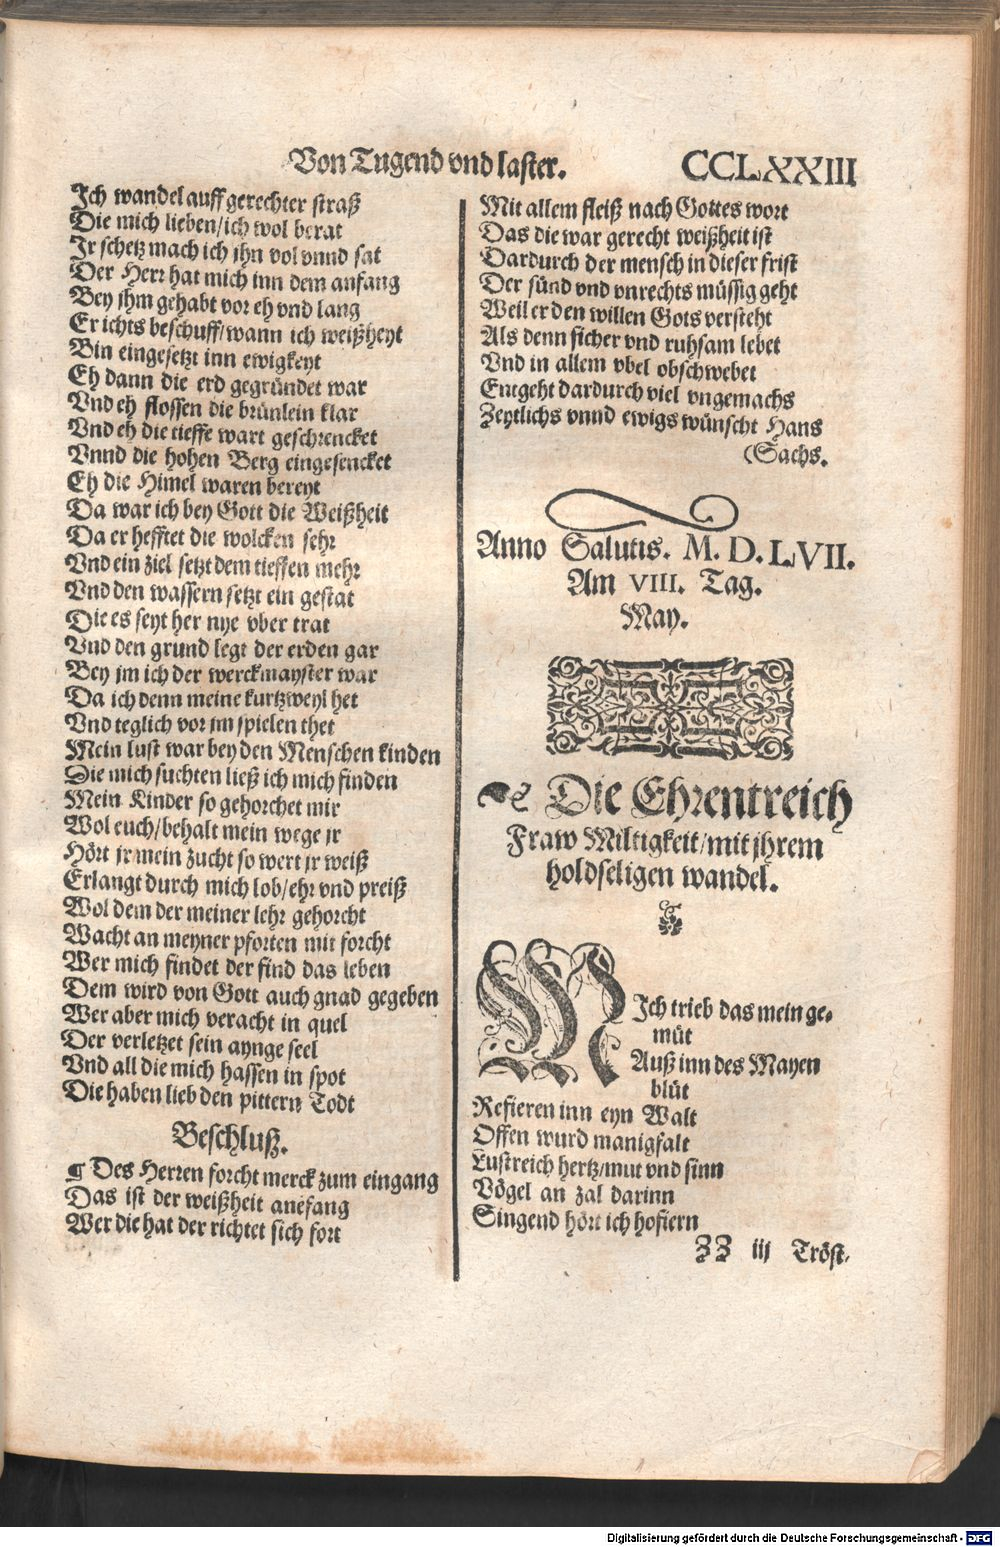 Von Tugend vnd laster. CCLXXIII
Ich wandel auff gerechter straß
Die mich lieben/ich wol berat
Ir schetz mach ich jhn vol vnnd sat
Der Herr hat mich inn dem anfang
Bey jhm gehabt vor eh vnd lang
Er ichts beschuff/wann ich weißheyt
Bin eingesetzt inn ewigkeyt
Eh dann die erd gegründet war
Vnd eh flossen die brünlein klar
Vnd eh die tieffe wart geschrencket
Vnnd die hohen Berg eingesencket
Eh die Himel waren bereyt
Da war ich bey Gott die Weißheit
Da er hefftet die wolcken sehr
Vnd ein ziel setzt dem tieffen mehr
Vnd den wassern setzt ein gestat
Die es seyt her nye vber trat
Vnd den grund legt der erden gar
Bey jm ich der werckmayster war
Da ich denn meine kurtzweyl het
Vnd teglich vor jm spielen thet
Mein lust war bey den Menschen kinden
Die mich suchten ließ ich mich finden
Mein Kinder so gehorchet mir
Wol euch/behalt mein wege jr
Hört jr mein zucht so wert jr weiß
Erlangt durch mich lob/ehr vnd preiß
Wol dem der meiner lehr gehorcht
Wacht an meyner pforten mit forcht
Wer mich findet der find das leben
Dem wird von Gott auch gnad gegeben
Wer aber mich veracht in quel
Der verletzet sein aynge seel
Vnd all die mich hassen in spot
Die haben lieb den pittern Todt
Beschluß.
¶ Des Herren forcht merck zum eingang
Das ist der weißheit anefang
Wer die hat der richtet sich fort
Mit allem fleiß nach Gottes wort
Das die war gerecht weißheit ist
Dardurch der mensch in dieser frist
Der sünd vnd vnrechts müssig geht
Weil er den willen Gots versteht
Als denn sicher vnd ruhsam lebet
Vnd in allem vbel obschwebet
Entgeht dardurch viel vngemachs
Zeytlichs vnnd ewigs wünscht Hans
(Sachs.
Anno Salutis. M. D. LVII.
Am VIII. Tag.
May.
Die Ehrentreich
Fraw Miltigkeit/mit jhrem
holdseligen wandel.
MIch trieb das mein ge-
müt
Auß inn des Mayen
blüt
Refieren inn eyn Walt
Offen wurd manigfalt
Lustreich hertz/mut vnd sinn
Vögel an zal darinn
Singend hört ich hofiern
ZZ iij Tröst-
Digitalisierung gefördert durch die Deutsche Forschungsgemeinschaft - DFG